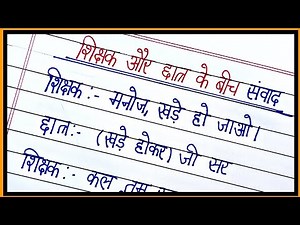 शिक्षक और छात्र के बीच संवाद
शिक्षक:- मनोज, खड़े हो जाओ।
छात्र:- (खड़े होकर) जी सर
शिक्षक:- कल तुम